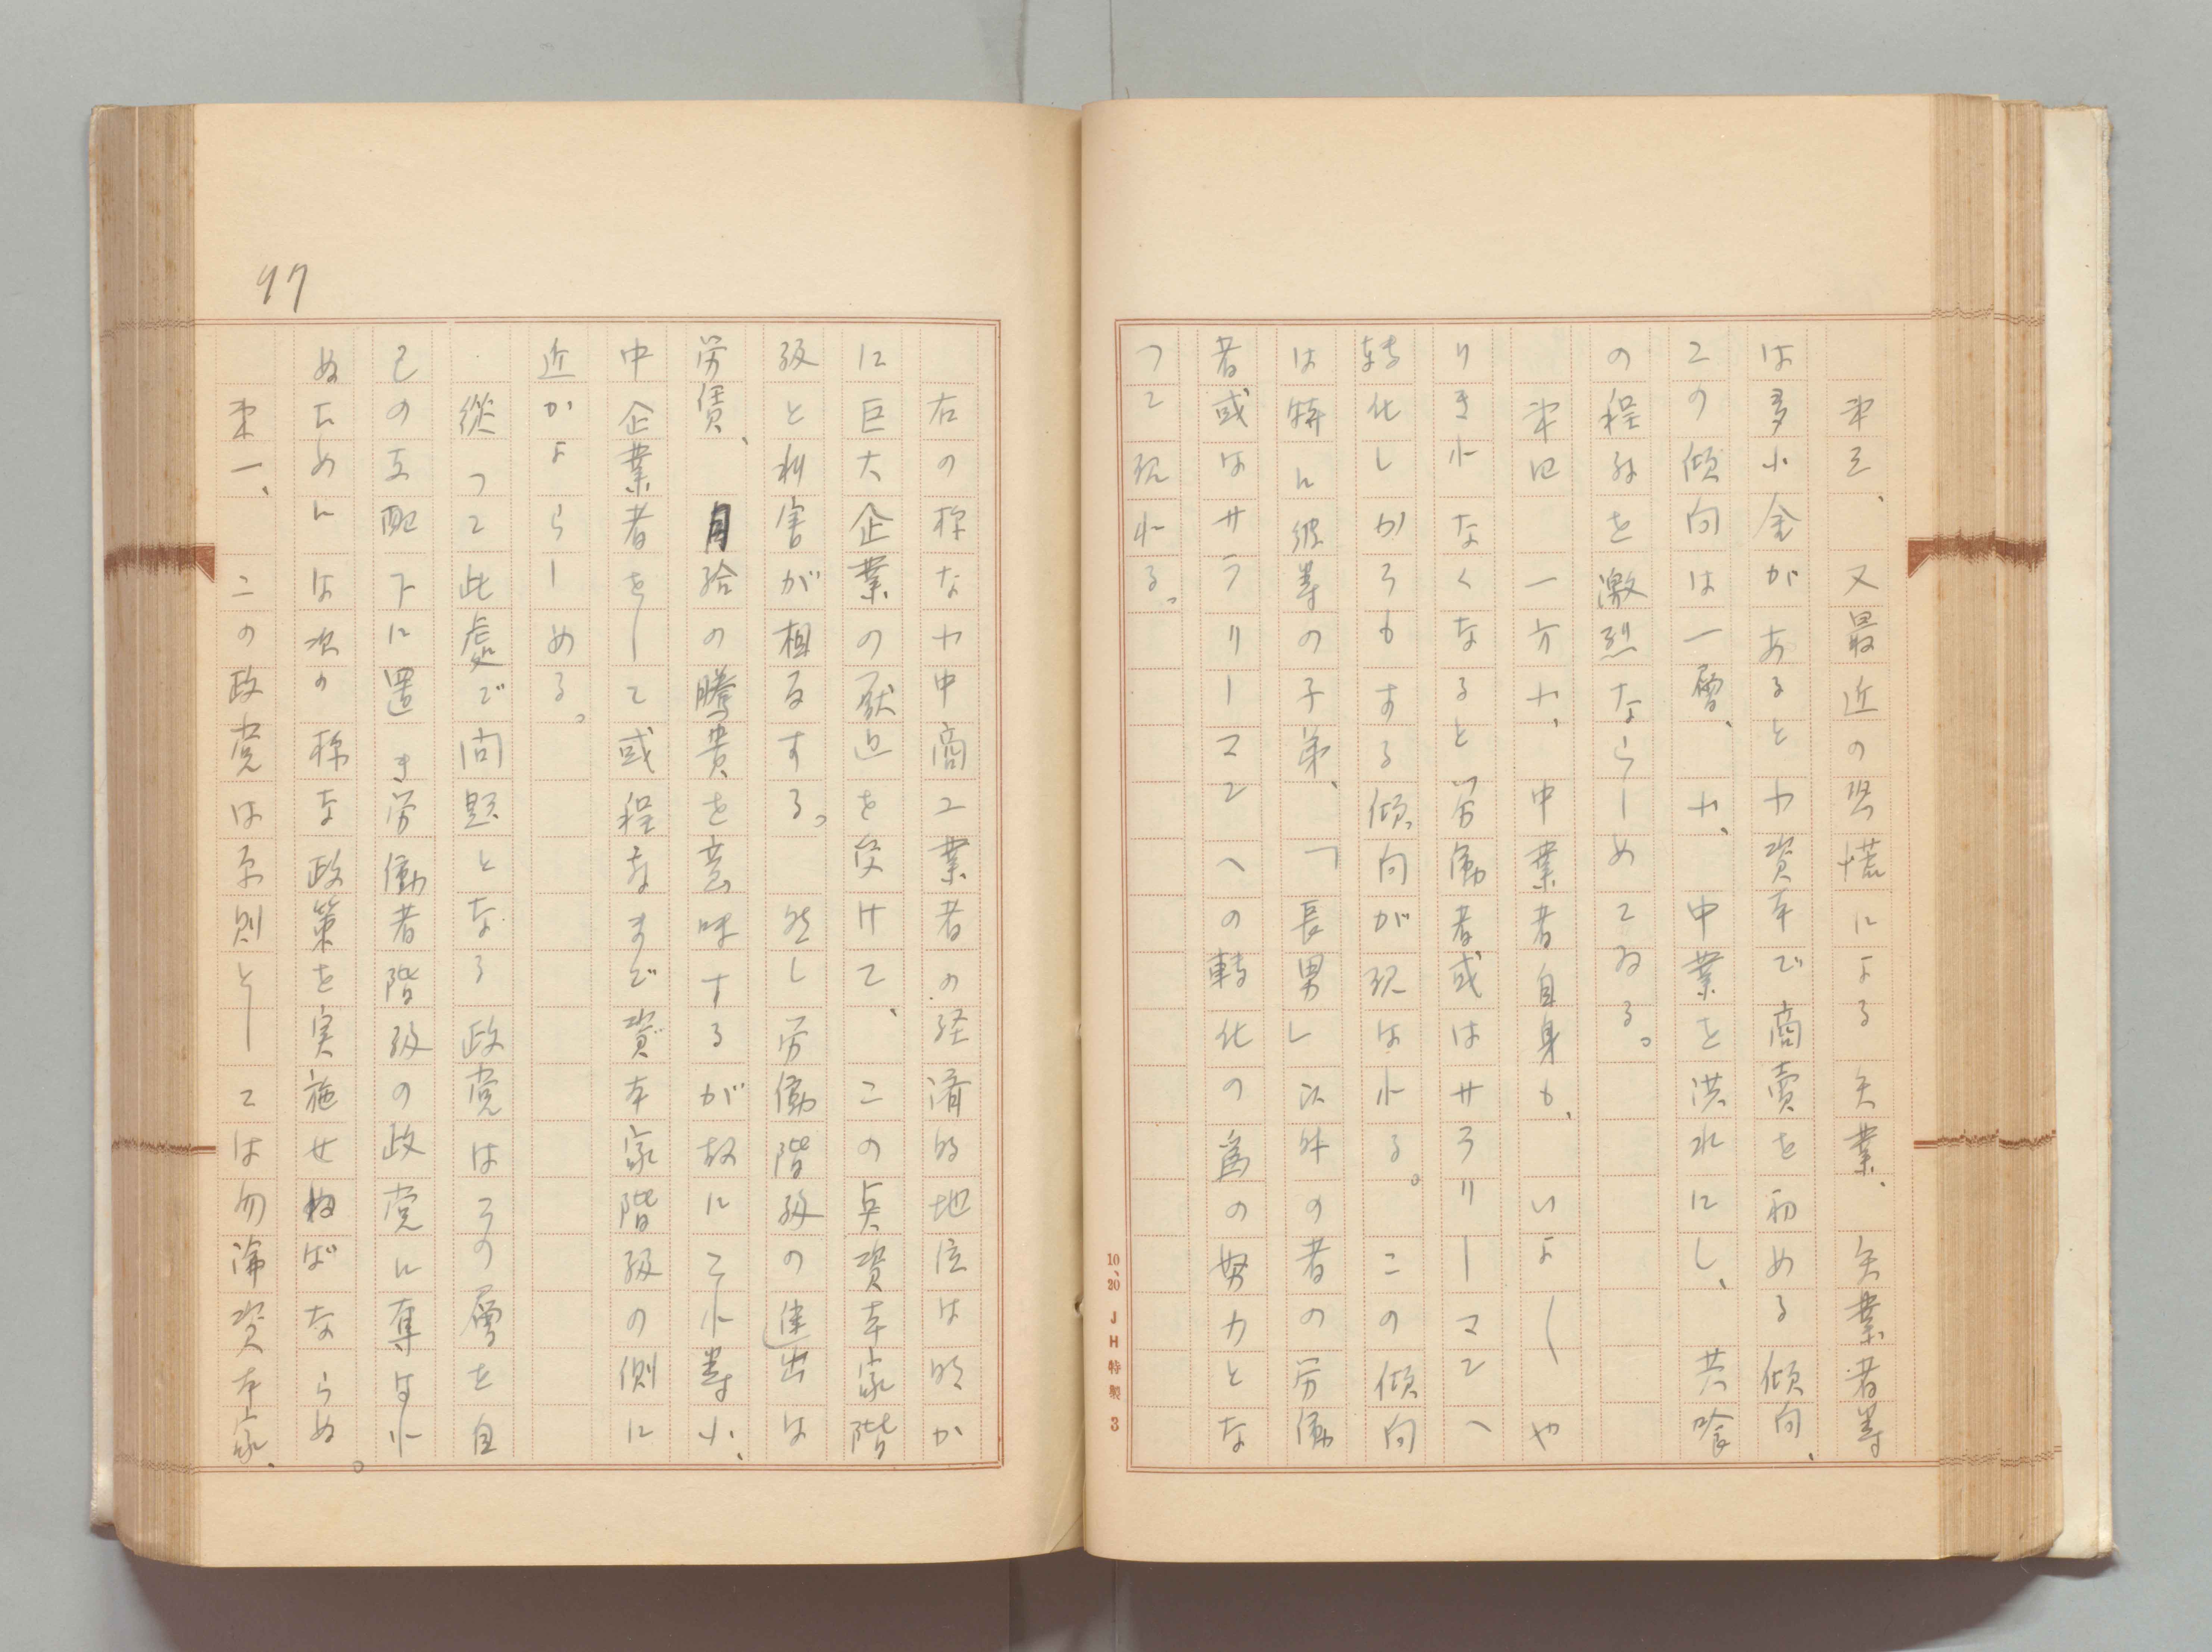 第三、又最近の恐慌による失業、失業者等
は多少金があると小資本で商賣を初める傾向、
この傾向は一層、小、中業を洪水にし、共喰
の程度を激烈ならしめてゐる。
第四 一方小、中業者自身も、いよ〱や
りきれなくなると労働者或はサラリーマンへ
転化しかゝらもする傾向が現はれる。この傾向
は特に彼等の子弟、「長男」以外の者の労働
者或はサラリーマンへの轉化の為の努力とな
つて現れる。
10、20 JH特製 3
97
右の様な小中商工業者の経済的地位は明か
に巨大企業の圧迫を受けて、この点資本家階
級と利害が相反する。然し労働階級の進出は
労賃、月給の騰貴を意味するが故にこれ等小、
中企業者をして或程度まで資本家階級の側に
近かよらしめる。
従つて此處で問題となる政党はその層を自
己の支配下に置き労働者階級の政党に奪はれ
ぬためには次の様な政策を実施せねばならぬ。
第一、この政党は原則としては勿論資本家、